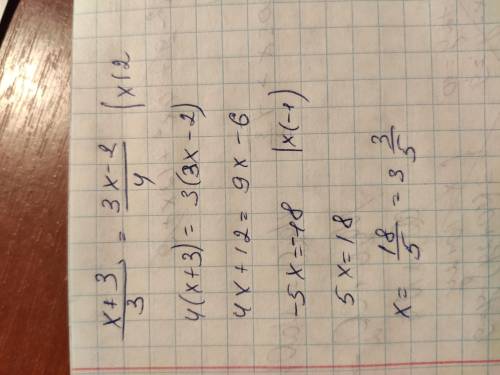 x+3/3 = 3x-2/4 |x12
4(x+3) = 3(3x-2)
4x+12 = 9x-6
-5x=-18 |x(-1)
5x=18
x= 18/5 = 3 3/5